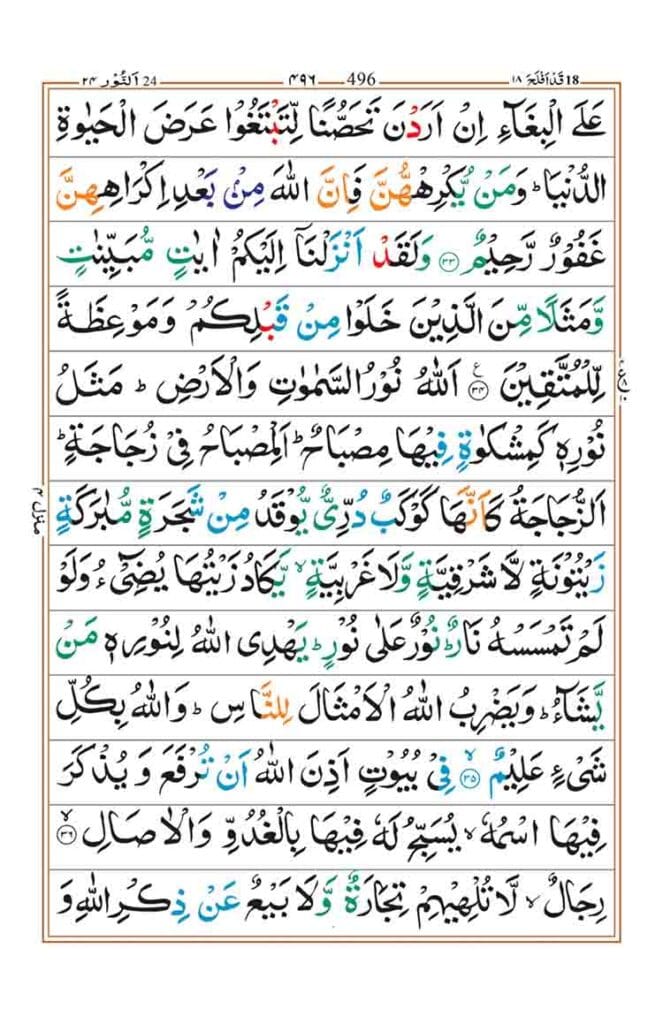 18 قَدْ اَفْلَحَ ١٨ 496 ٤٩٦ 24 اَلنُّوْر ٢٤
عَلَى الْبِغَآءِ اِنْ اَرَدْنَ تَحَصُّنًا لِّتَبْتَغُوْا عَرَضَ الْحَيٰوةِ
الدُّنْيَا ؕ وَمَنْ يُّكْرِهْهُّنَّ فَاِنَّ اللّٰهَ مِنْۢ بَعْدِ اِكْرَاهِهِنَّ
غَفُوْرٌ رَّحِيْمٌ ۝۳۳ وَلَقَدْ اَنْزَلْنَاۤ اِلَيْكُمْ اٰيٰتٍ مُّبَيِّنٰتٍ
وَّمَثَلًا مِّنَ الَّذِيْنَ خَلَوْا مِنْ قَبْلِكُمْ وَمَوْعِظَةً
لِّلْمُتَّقِيْنَ ۝۳۴ ع اَللّٰهُ نُوْرُ السَّمٰوٰتِ وَالْاَرْضِ ؕ مَثَلُ
نُوْرِهٖ كَمِشْكٰوةٍ فِيْهَا مِصْبَاحٌ ؕ اَلْمِصْبَاحُ فِيْ زُجَاجَةٍ ؕ
اَلزُّجَاجَةُ كَاَنَّهَا كَوْكَبٌ دُرِّيٌّ يُّوْقَدُ مِنْ شَجَرَةٍ مُّبٰرَكَةٍ
زَيْتُوْنَةٍ لَّا شَرْقِيَّةٍ وَّلَا غَرْبِيَّةٍ ۙ يَّكَادُ زَيْتُهَا يُضِيْٓءُ وَلَوْ
لَمْ تَمْسَسْهُ نَارٌ ؕ نُوْرٌ عَلٰى نُوْرٍ ؕ يَهْدِى اللّٰهُ لِنُوْرِهٖ مَنْ
يَّشَآءُ ؕ وَيَضْرِبُ اللّٰهُ الْاَمْثَالَ لِلنَّاسِ ؕ وَاللّٰهُ بِكُلِّ
شَيْءٍ عَلِيْمٌ ۝۳۵ۙ فِيْ بُيُوْتٍ اَذِنَ اللّٰهُ اَنْ تُرْفَعَ وَيُذْكَرَ
فِيْهَا اسْمُهٗ ۙ يُسَبِّحُ لَهٗ فِيْهَا بِالْغُدُوِّ وَالْاٰصَالِ ۝۳۶ۙ
رِجَالٌ ۙ لَّا تُلْهِيْهِمْ تِجَارَةٌ وَّلَا بَيْعٌ عَنْ ذِكْرِ اللّٰهِ وَ
منزل ٤